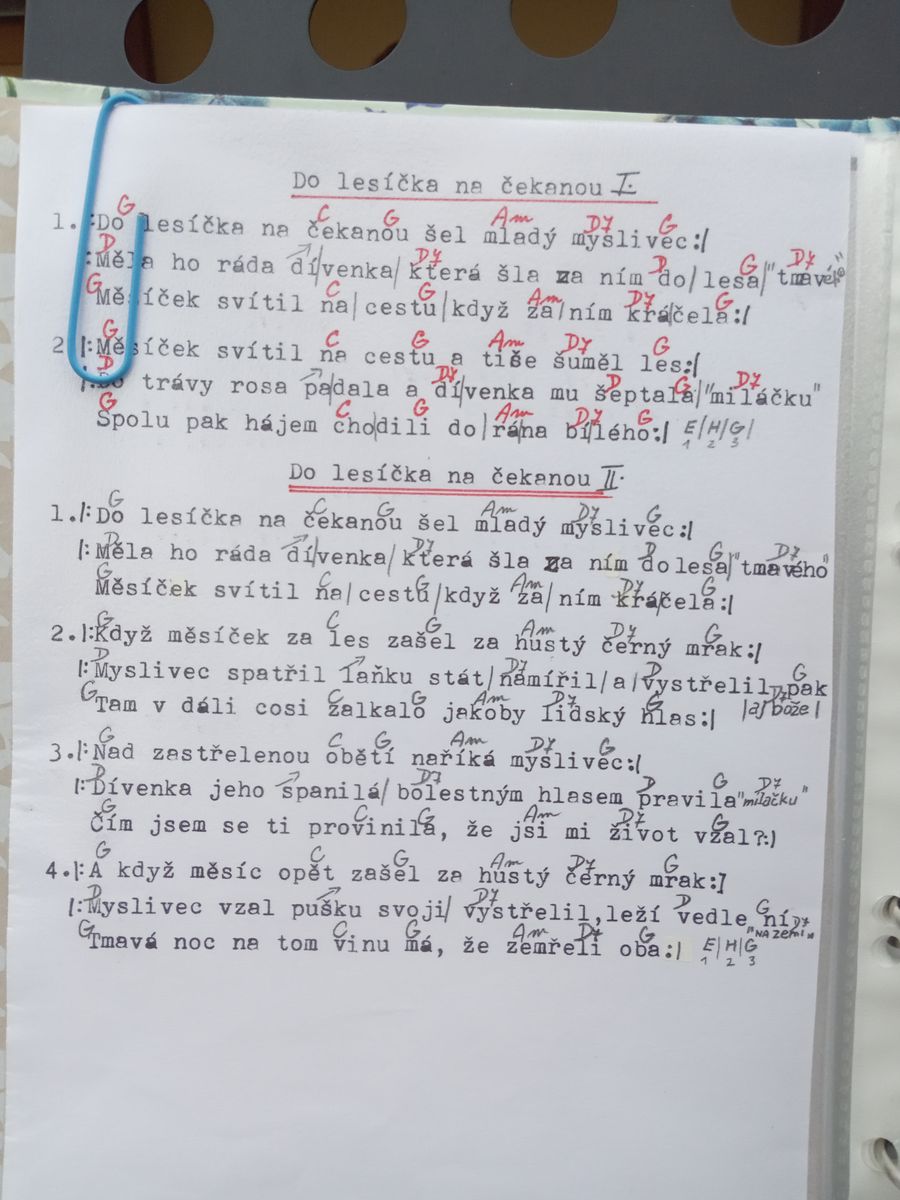 Do lesíčka na čekanou I.
G C G Am D7 G
1. |:Do lesíčka na čekanou šel mladý myslivec:|
D D7 D G D7
|:Měla ho ráda dí|venka| která šla za ním do|lesa|"tmavého"
G C G Am D7 G
Měsíček svítil na|cestu|když za|ním krá|čela:|
G C G Am D7 G
2 |:Měsíček svítil na cestu a tiše šuměl les:|
D D7 D G D7
|:Do trávy rosa pa|dala a dí|venka mu šeptala|"miláčku"
G C G Am D7 G
Spolu pak hájem cho|dili do|rá|na bí|lého:| E|H|G|
1 2 3
Do lesíčka na čekanou II.
G C G Am D7 G
1.|:Do lesíčka na čekanou šel mladý myslivec:|
D D7 D G D7
|:Měla ho ráda dí|venka|která šla za ním do lesa|"tmavého"
G C G Am D7 G
Měsíček svítil na|cestu|když za|ním krá|čela:|
G C G Am D7 G
2.|:Když měsíček za les zašel za hustý černý mrak:|
D D7 D G
|:Myslivec spatřil laňku stát|namířil|a|vystřelil pak
G C G Am D7 G D7
Tam v dáli cosi zalkalo jakoby lidský hlas:| |aj bože|
G C G Am D7 G
3.|:Nad zastřelenou obětí naříká myslivec:|
D D7 D G D7
|:Dívenka jeho spanilá|bolestným hlasem pravila"miláčku"
G C G Am D7 G
Čím jsem se ti provinila, že jsi mi život vzal?:)
G C G Am D7 G
4.|:A když měsíc opět zašel za hustý černý mrak:]
D D7 D G D7
|:Myslivec vzal pušku svoji| vystřelil,leží vedle ní "NA ZEMI"
G C G Am D7 G
Tmavá noc na tom vinu má, že zemřeli oba:| E|H|G
1 2 3